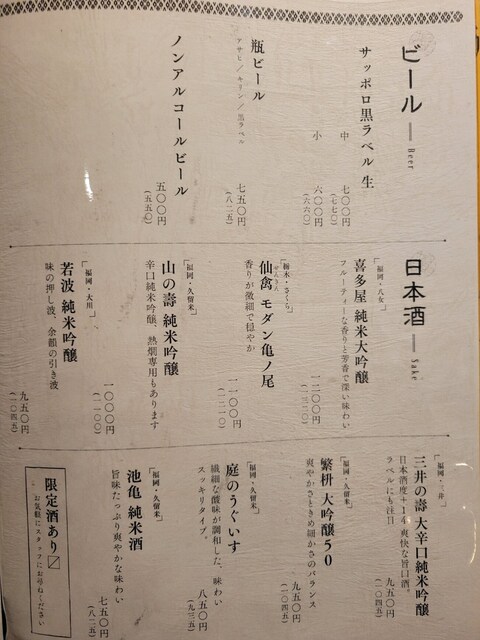 ビール
Beer
サッポロ黒ラベル 生
中 七〇〇円
(七七〇)
小 六〇〇円
(六六〇)
瓶ビール
アサヒ／キリン／黒ラベル
七五〇円
(八二五)
ノンアルコールビール
五〇〇円
(五五〇)
日本酒
Sake
「福岡・八女」
喜多屋 純米大吟醸
フルーティーな香りと芳香で深い味わい
一二〇〇円
(一三二〇)
「栃木・さくら」
仙禽 モダン亀ノ尾
せんきん
香りが微細で穏やか
一一〇〇円
(一二一〇)
「福岡・久留米」
山の壽 純米吟醸
辛口純米吟醸、熱燗専用もあります
一〇〇〇円
(一一〇〇)
「福岡・大川」
若波 純米吟醸
味の押し波、余韻の引き波
九五〇円
(一〇四五)
「福岡・三井」
三井の壽 大辛口純米吟醸
日本酒度+14 爽快な旨口酒。
ラベルにも注目
九五〇円
(一〇四五)
「福岡・久留米」
繁枡 大吟醸50
爽やかさときめ細かさのバランス
九五〇円
(一〇四五)
「福岡・久留米」
庭のうぐいす
繊細な酸味が調和した、味わい
スッキリタイプ。
八五〇円
(九三五)
「福岡・久留米」
池亀 純米酒
旨味たっぷり爽やかな味わい
七五〇円
(八二五)
限定酒あり
お気軽にスタッフにお尋ねください